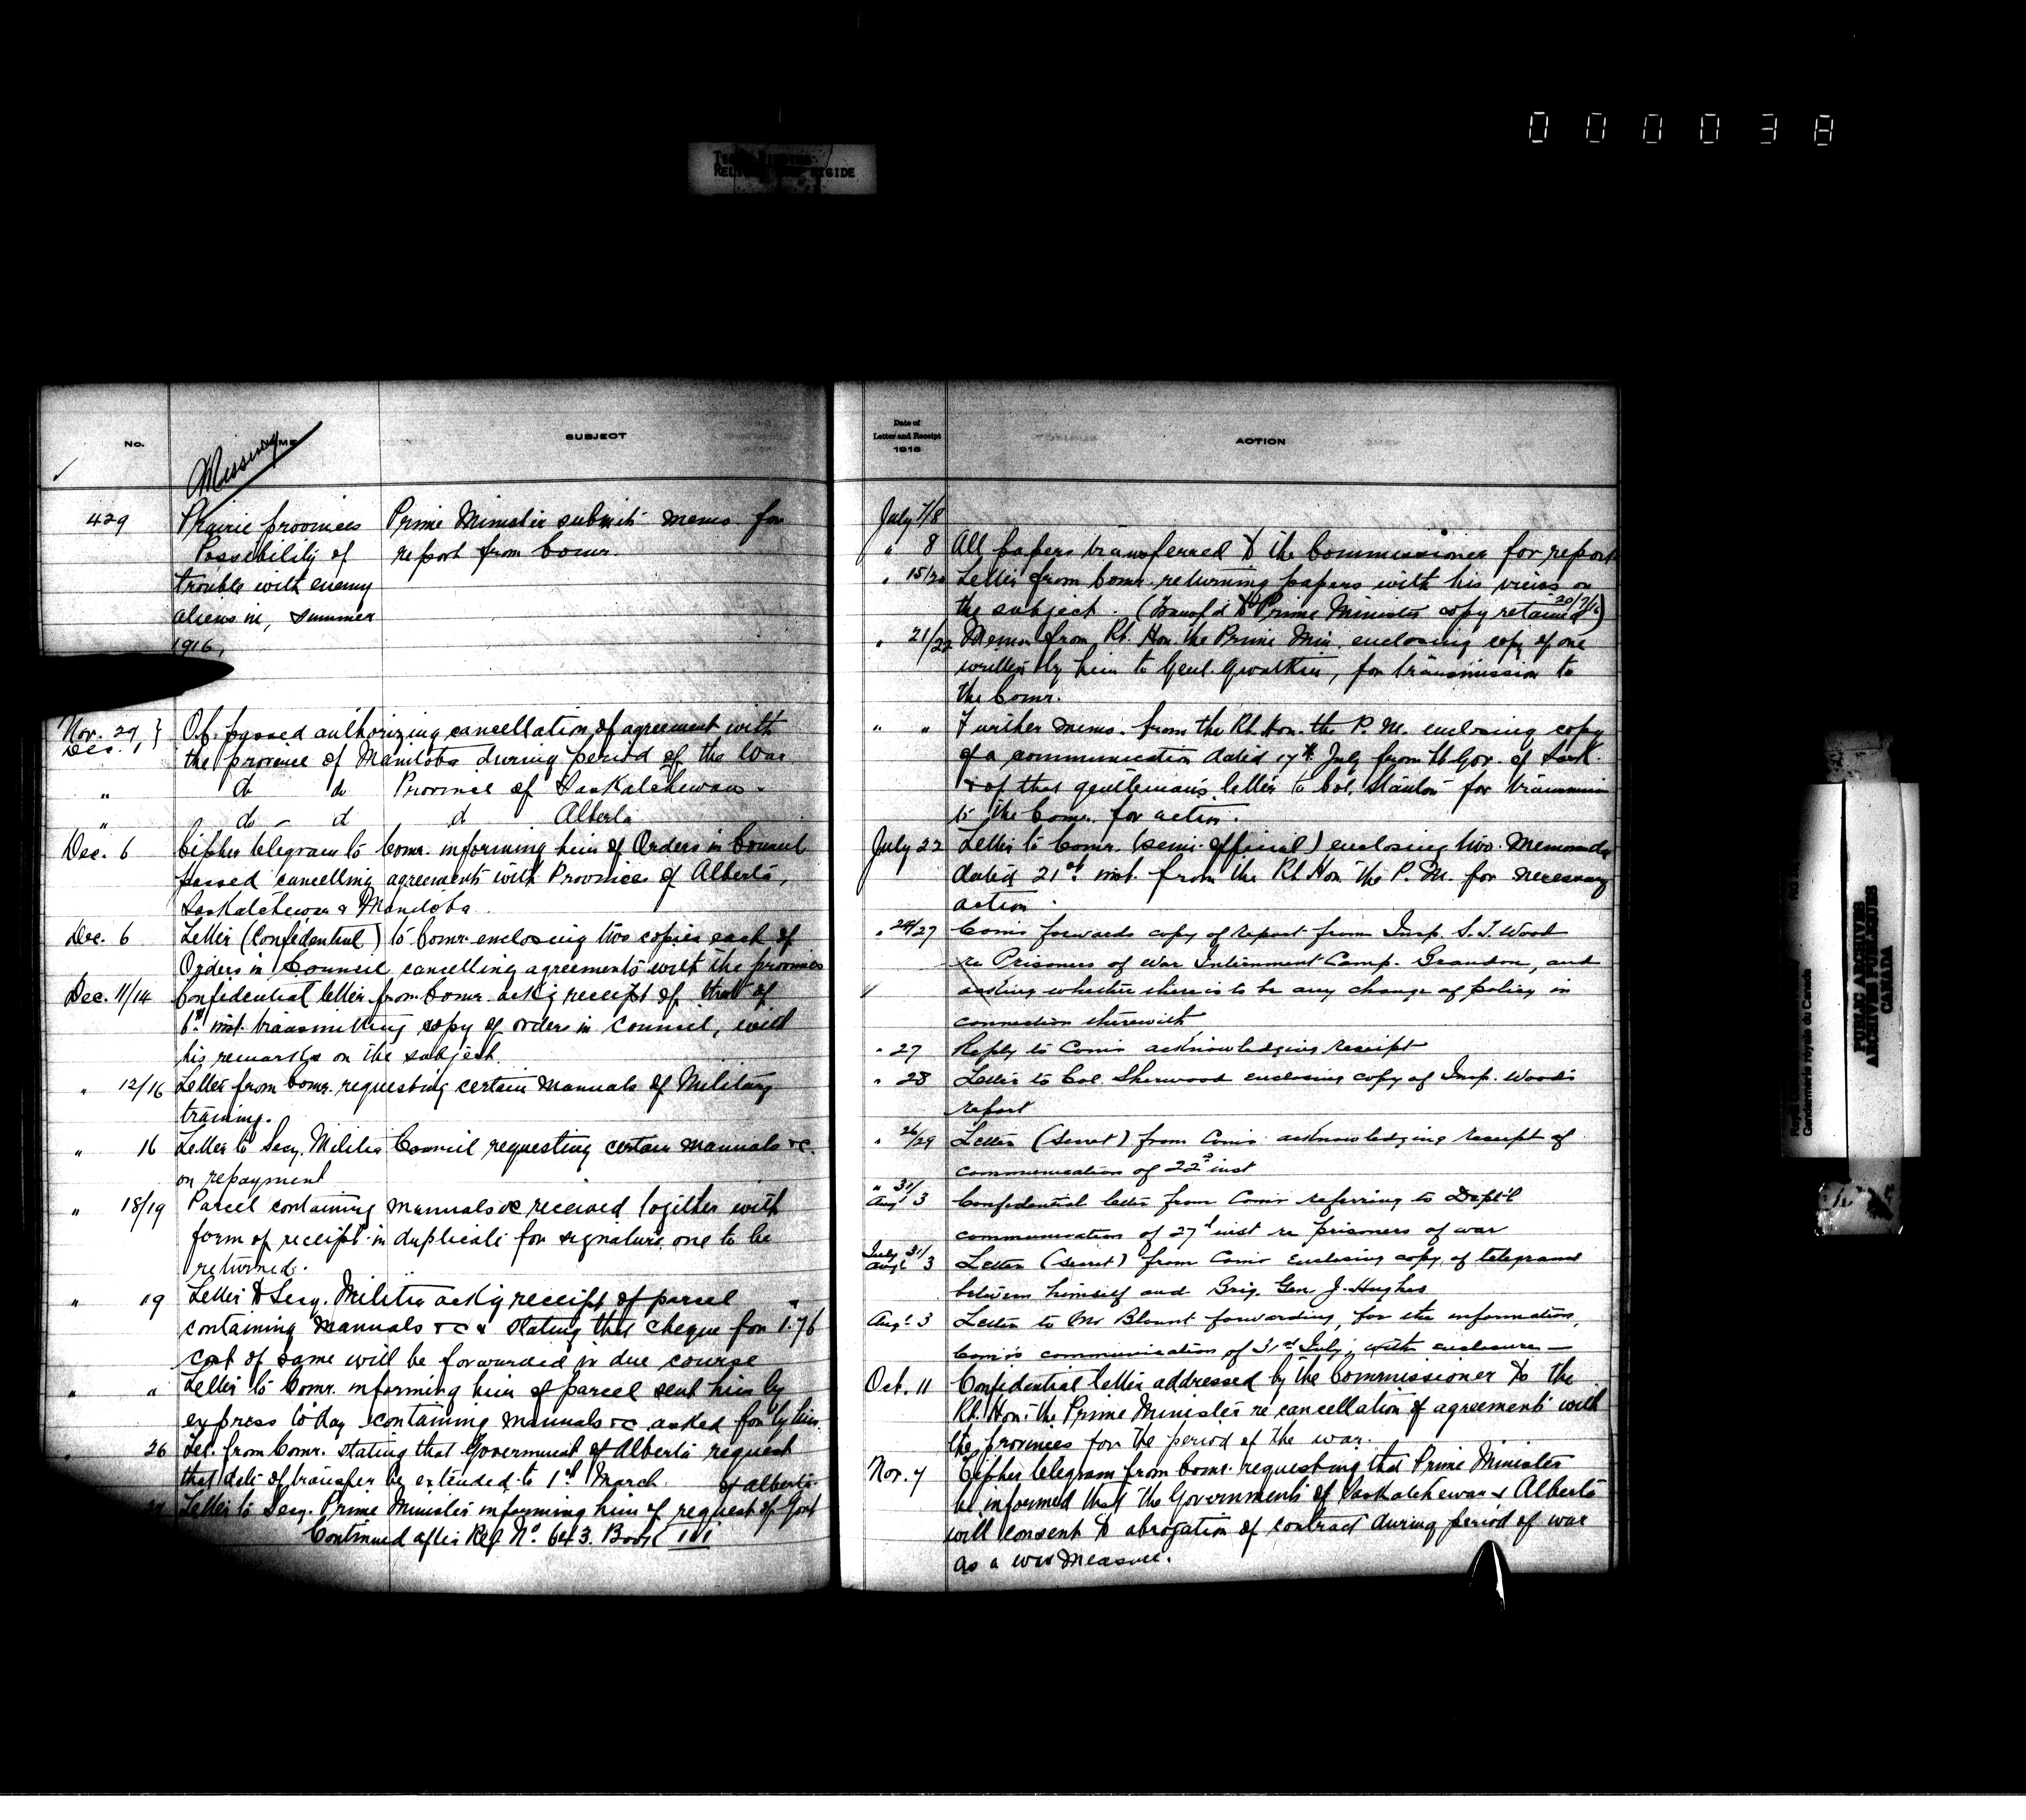 000038
RELIURE RIGIDE
No.
NAME
SUBJECT
Missing
429
Prairie provinces
Possibility of
trouble with enemy
aliens in, summer
1916,
Prime Minister submits memo for
report from Comr.
Nov. 29 }
Dec. 1
O.C. passed authorizing cancellation of agreement with
the province of Manitoba during period of the War
" do do Province of Saskatchewan.
" do - d d Alberta
Dec. 6 Cipher telegram to Comr. informing him of Orders in Council
passed cancelling agreements with Provinces of Alberta,
Saskatchewan & Manitoba.
Dec. 6 Letter (Confidential) to Comr. enclosing two copies each of
Orders in Council cancelling agreements with the provinces
Dec. 11/14 Confidential letter from Comr. ackg receipt of that of
6th inst. transmitting copy of orders in Council, with
his remarks on the subject.
" 12/16 Letter from Comr. requesting certain manuals of Military
training.
" 16 Letter to Secy. Militia Council requesting certain manuals &c.
on repayment
" 18/19 Parcel containing manuals &c received together with
form of receipt in duplicate for signature one to be
returned.
" 19 Letter to Secy. Militia ackg receipt of parcel
containing manuals &c & stating that cheque for 1.76
cost of same will be forwarded in due course
" " Letter to Comr. informing him of parcel sent him by
express to day containing manuals &c asked for by him.
" 26 Tel. from Comr. stating that Government of Alberta request
that date of transfer be extended to 1st March
of Alberta
27 Letter to Secy. Prime Minister informing him of request of Govt
Continued after Ref No. 643. Book III
Date of
Letter and Receipt
1916
ACTION
July 7/8
" 8 All papers transferred to the Commissioner for report
" 15/20 Letter from Comr. returning papers with his views on
the subject. (Transf'd to Prime Minister copy retained 20/7/16)
" 21/22 Memo from Rt. Hon. the Prime Min. enclosing copy of one
written by him to Genl. Gwatkin, for transmission to
the Comr.
" " Further memo. from the Rt. Hon. the P. M. enclosing copy
of a communication dated 17th July from Lt Gov. of Sask.
& of that gentleman's letter to Col. Stanton for transmission
to the Comr. for action.
July 22 Letter to Comr. (semi-official) enclosing two memoranda
dated 21st inst. from the Rt Hon the P. M. for necessary
action.
" 24/27 Comr forwards copy of report from Insp. S. T. Wood
re Prisoners of War Internment Camp. Brandon, and
asking whether there is to be any change of policy in
connection therewith
" 27 Reply to Comr acknowledging receipt
" 28 Letter to Col. Sherwood enclosing copy of Insp. Wood's
report
" 26/29 Letter (secret) from Comr acknowledging receipt of
communication of 22nd inst
" 31/
Augt 3 Confidential letter from Comr referring to Dept'l
communication of 27th inst re prisoners of war
July 31/
Augt 3 Letter (secret) from Comr enclosing copy of telegrams
between himself and Brig. Gen. J. Hughes
Augt 3 Letter to Mr Blount forwarding, for the information,
Comr's communication of 31st July, with enclosure —
Oct. 11 Confidential letter addressed by the Commissioner to the
Rt. Hon. the Prime Minister re cancellation of agreements with
the provinces for the period of the war.
Nov. 7 Cipher telegram from Comr. requesting that Prime Minister
be informed that the Governments of Saskatchewan & Alberta
will consent to abrogation of contract during period of war
as a war measure.
Gendarmerie royale du Canada
PUBLIC ARCHIVES
ARCHIVES PUBLIQUES
CANADA